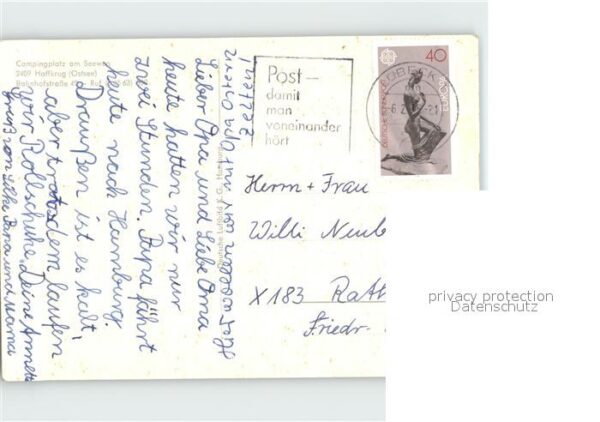 Campingplatz am Seeweg
2409 Haffkrug (Ostsee)
Bahnhofstraße
Post –
damit
man
voneinander
hört
40
DEUTSCHE BUNDESPOST
LÜBECK
Deutsche Luftbild K.G., Hamburg
Lieber Opa und Liebe Oma
heute hatten wir nur
zwei Stunden. Papa fährt
heute nach Hamburg.
Draußen ist es kalt,
aber trotzdem laufen
wir Rollschuhe. Deine Annette
gruß von Silke Papa und Mama
Herrn + Frau
Willi
X 183 Rath
Friedr.
privacy protection
Datenschutz